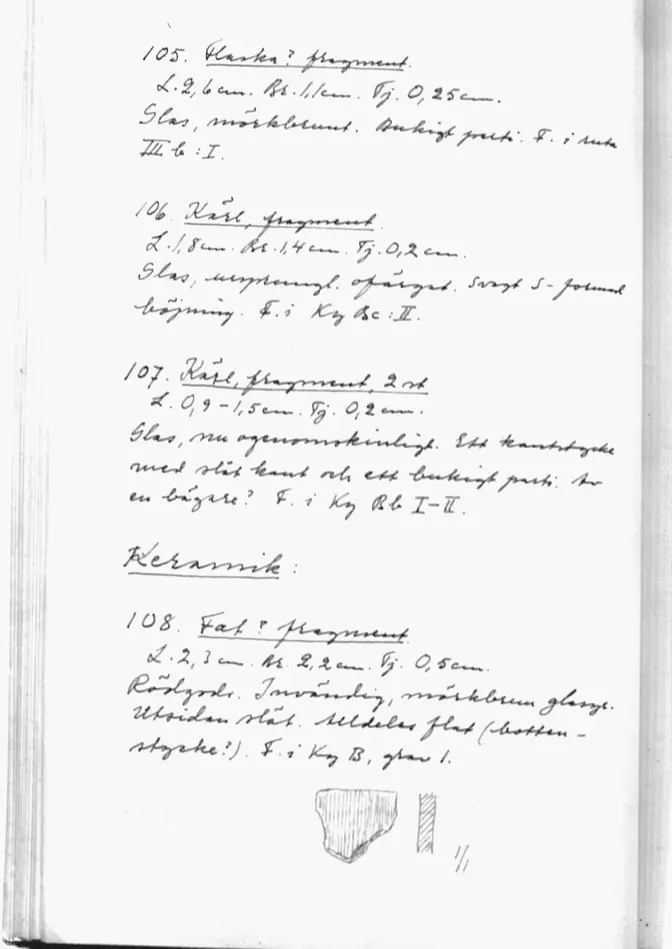 105. Flaska? fragment.
L. 2,6 cm. Br. 1,1 cm. Tj. 0,25 cm.
Glas, mörkbrunt. Bukigt parti. F. i ruta
III b : I.
106. Kärl, fragment.
L. 1,8 cm. Br. 1,4 cm. Tj. 0,2 cm.
Glas, ursprungl. ofärgat. Svagt S-formad
böjning. F. i Ky Bc : II.
107. Kärl, fragment, 2 st
L. 0,9 – 1,5 cm. Tj. 0,2 cm.
Glas, nu ogenomskinligt. Ett kantstycke
med slät kant och ett bukigt parti. Av
en bägare? F. i Ky Bb I–II.
Keramik:
108. Fat? fragment.
L. 2,3 cm. Br. 2,2 cm. Tj. 0,5 cm.
Rödgods. Invändig, mörkbrun glasyr.
Utsidan slät. Alldeles flat (botten-
stycke?). F. i Ky B, grav 1.
1/1